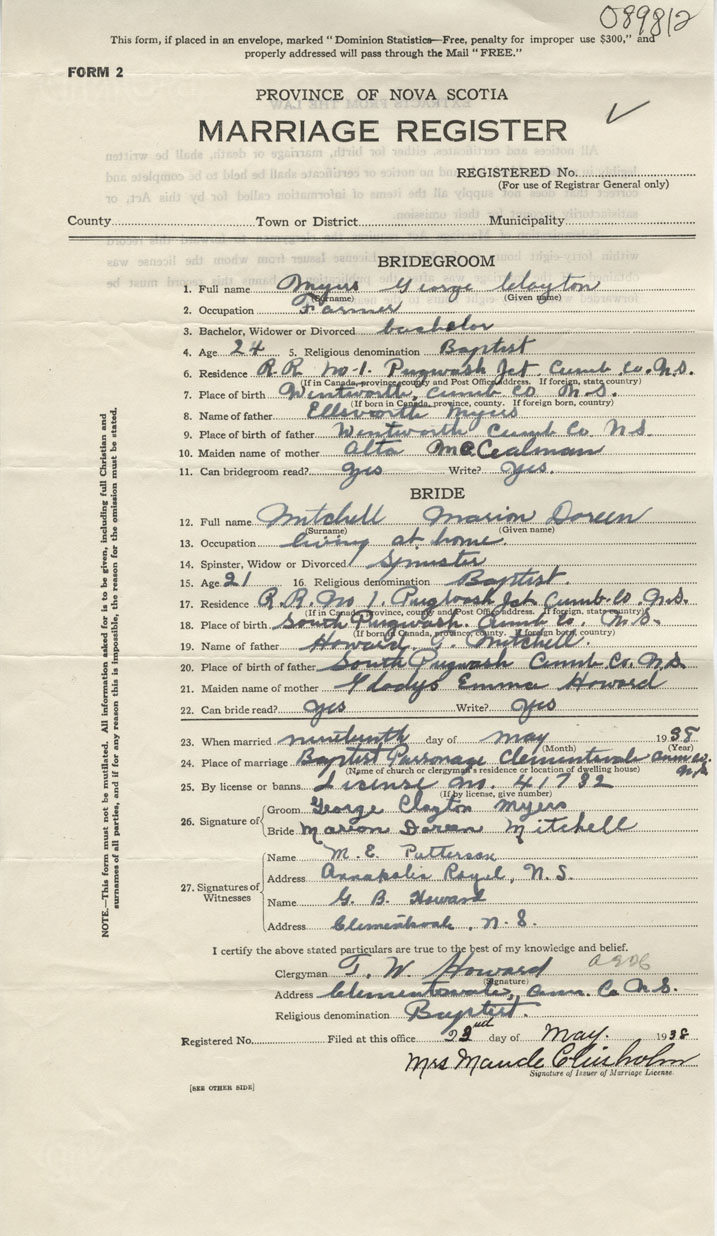 089812
This form, if placed in an envelope, marked "Dominion Statistics—Free, penalty for improper use $300," and
properly addressed will pass through the Mail "FREE."
FORM 2
PROVINCE OF NOVA SCOTIA
MARRIAGE REGISTER
REGISTERED No.
(For use of Registrar General only)
County Town or District Municipality
BRIDEGROOM
1. Full name Myers George Clayton
(Surname) (Given name)
2. Occupation Farmer
3. Bachelor, Widower or Divorced bachelor
4. Age 24 5. Religious denomination Baptist
6. Residence R.R. No-1. Pugwash Jct Cumb Co. N.S.
(If in Canada, province, county and Post Office address. If foreign, state country)
7. Place of birth Wentworth, Cumb Co N.S.
(If born in Canada, province, county. If foreign born, country)
8. Name of father Ellsworth Myers
9. Place of birth of father Wentworth Cumb Co. N S.
10. Maiden name of mother Alta
11. Can bridegroom read? yes Write? yes.
BRIDE
12. Full name Mitchell Marion Doreen
(Surname) (Given name)
13. Occupation living at home.
14. Spinster, Widow or Divorced Spinster
15. Age 21 16. Religious denomination Baptist.
17. Residence R.R. No 1. Pugwash Jct Cumb. Co. N.S.
(If in Canada, province, county and Post Office address. If foreign, state country)
18. Place of birth South Pugwash. Cumb Co. N.S.
(If born in Canada, province, county. If foreign born, country)
19. Name of father Howard Mitchell.
20. Place of birth of father South Pugwash Cumb. Co. N.S.
21. Maiden name of mother Gladys Emma Howard
22. Can bride read? yes Write? yes
23. When married nineteenth day of May 1938
(Month) (Year)
24. Place of marriage Baptist Parsonage Clementsvale Ann Co. N.S.
(Name of church or clergyman's residence or location of dwelling house)
25. By license or banns License No. 41732
(If by license, give number)
26. Signature of Groom George Clayton Myers
Bride Marion Doreen Mitchell
27. Signatures of Witnesses
Name M. E. Patterson
Address Annapolis Royal, N.S.
Name G. B. Howard
Address Clementsvale, N.S.
I certify the above stated particulars are true to the best of my knowledge and belief.
Clergyman T. W. Howard
(Signature)
Address Clementsvale, Ann. Co N.S.
Religious denomination Baptist.
Registered No. Filed at this office 23rd day of May. 1938
Mrs Maude Chisholm
Signature of Issuer of Marriage License.
[SEE OTHER SIDE]
NOTE.—This form must not be mutilated. All information asked for is to be given, including full Christian and
surnames of all parties, and if for any reason this is impossible, the reason for the omission must be stated.